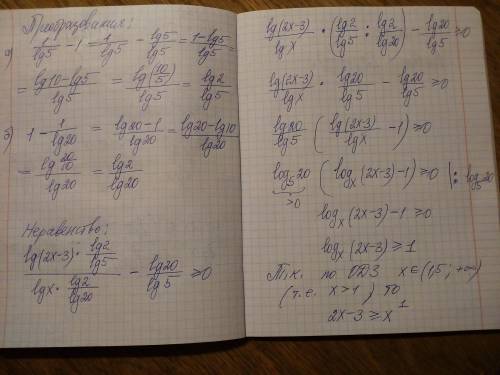 Преобразования:
а) 1/lg5 - 1 = 1/lg5 - lg5/lg5 = (1-lg5)/lg5 =
= (lg10-lg5)/lg5 = lg(10/5)/lg5 = lg2/lg5
б) 1 - 1/lg20 = (lg20-1)/lg20 = (lg20-lg10)/lg20
= lg(20/10)/lg20 = lg2/lg20
Неравенство:
(lg(2x-3) · lg2/lg5)/(lgx · lg2/lg20) - lg20/lg5 ≥0
lg(2x-3)/lgx · (lg2/lg5 : lg2/lg20) - lg20/lg5 ≥0
lg(2x-3)/lgx · lg20/lg5 - lg20/lg5 ≥0
lg20/lg5 (lg(2x-3)/lgx - 1) ≥0
log₅20 (logₓ(2x-3)-1) ≥0 |: log₅20
>0
logₓ(2x-3)-1 ≥0
logₓ(2x-3) ≥1
Т.к. по ОДЗ x∈(1,5; +∞)
(т.е. x>1), то
2x-3 ≥ x¹